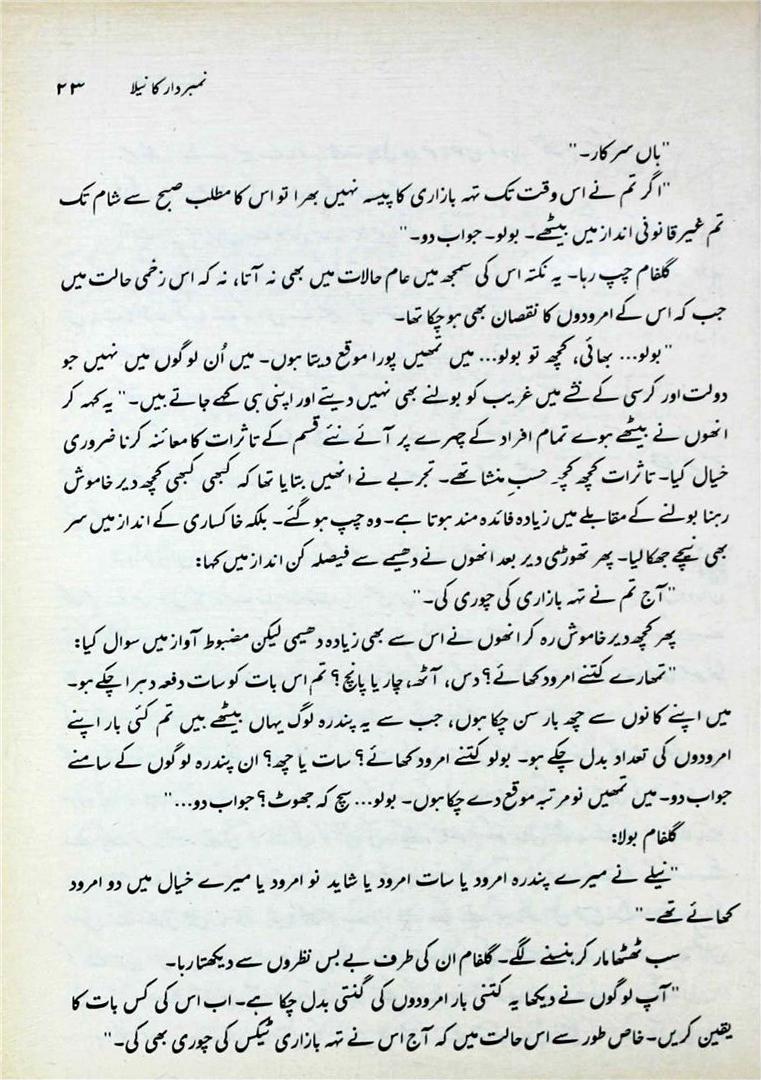 نمبردار کا نیلا ۲۳
"ہاں سرکار۔"
"اگر تم نے اس وقت تک تہہ بازاری کا پیسہ نہیں بھرا تو اس کا مطلب صبح سے شام تک
تم غیر قانونی انداز میں بیٹھے۔ بولو۔ جواب دو۔"
گلفام چپ رہا۔ یہ نکتہ اس کی سمجھ میں عام حالات میں بھی نہ آتا، نہ کہ اس زخمی حالت میں
جب کہ اس کے امرودوں کا نقصان بھی ہو چکا تھا۔
"بولو... بھائی، کچھ تو بولو... میں تمھیں پورا موقع دیتا ہوں۔ میں اُن لوگوں میں نہیں جو
دولت اور کرسی کے نشے میں غریب کو بولنے بھی نہیں دیتے اور اپنی ہی کہے جاتے ہیں۔" یہ کہہ کر
انھوں نے بیٹھے ہوے تمام افراد کے چہرے پر آئے نئے قسم کے تاثرات کا معائنہ کرنا ضروری
خیال کیا۔ تاثرات کچھ کچھ حسبِ منشا تھے۔ تجربے نے انھیں بتایا تھا کہ کبھی کبھی کچھ دیر خاموش
رہنا بولنے کے مقابلے میں زیادہ فائدہ مند ہوتا ہے۔ وہ چپ ہو گئے۔ بلکہ خاکساری کے انداز میں سر
بھی نیچے جھکا لیا۔ پھر تھوڑی دیر بعد انھوں نے دھیمے سے فیصلہ کن انداز میں کہا:
"آج تم نے تہہ بازاری کی چوری کی۔"
پھر کچھ دیر خاموش رہ کر انھوں نے اس سے بھی زیادہ دھیمی لیکن مضبوط آواز میں سوال کیا:
"تمھارے کتنے امرود کھائے؟ دس، آٹھ، چار یا پانچ؟ تم اس بات کو سات دفعہ دہرا چکے ہو۔
میں اپنے کانوں سے چھ بار سن چکا ہوں، جب سے یہ پندرہ لوگ یہاں بیٹھے ہیں تم کئی بار اپنے
امرودوں کی تعداد بدل چکے ہو۔ بولو کتنے امرود کھائے؟ سات یا چھ؟ ان پندرہ لوگوں کے سامنے
جواب دو۔ میں تمھیں نو مرتبہ موقع دے چکا ہوں۔ بولو... سچ کہ جھوٹ؟ جواب دو..."
گلفام بولا:
"نیلے نے میرے پندرہ امرود یا سات امرود یا شاید نو امرود یا میرے خیال میں دو امرود
کھائے تھے۔"
سب ٹھٹھا مار کر ہنسنے لگے۔ گلفام ان کی طرف بے بس نظروں سے دیکھتا رہا۔
"آپ لوگوں نے دیکھا یہ کتنی بار امرودوں کی گنتی بدل چکا ہے۔ اب اس کی کس بات کا
یقین کریں۔ خاص طور سے اس حالت میں کہ آج اس نے تہہ بازاری ٹیکس کی چوری بھی کی۔"